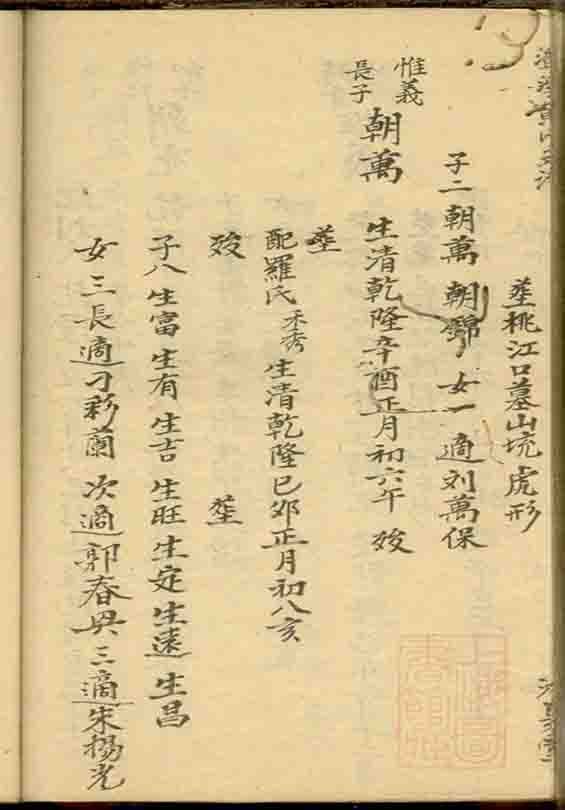 葬桃江口墓山坑虎形
子二朝萬 朝錦 女一 適刘萬保
惟義
長子
朝萬 生清乾隆辛酉正月初六午 歿
葬
配羅氏禾秀生清乾隆已卯正月初八亥
歿 葬
子八生富 生有 生吉 生旺 生定 生遠 生昌
女三長適刁彩蘭 次適郭春興三適朱楊光